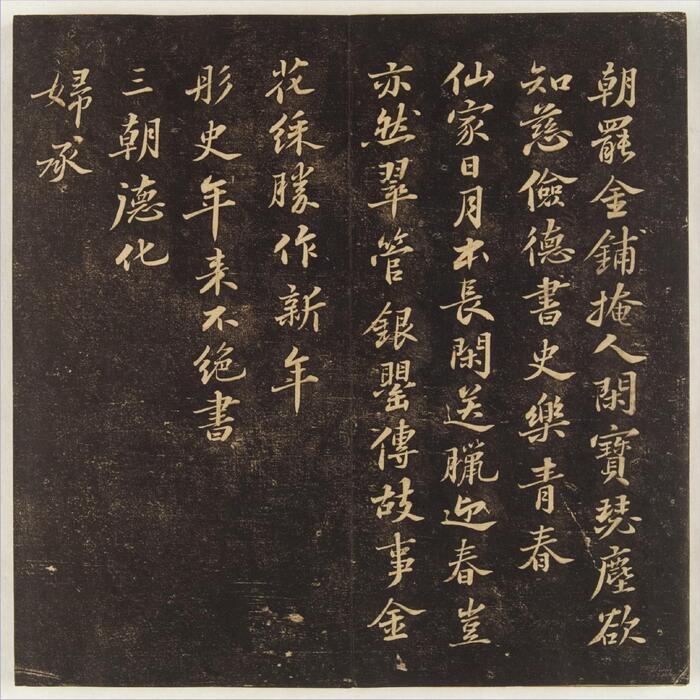 朝罷金鋪掩人閑寶瑟塵欲
知慈儉德書史樂青春
仙家日月本長閑送臘迎春豈
亦然翠管銀罌傳故事金
花綵勝作新年
彤史年來不絶書
三朝德化
婦承